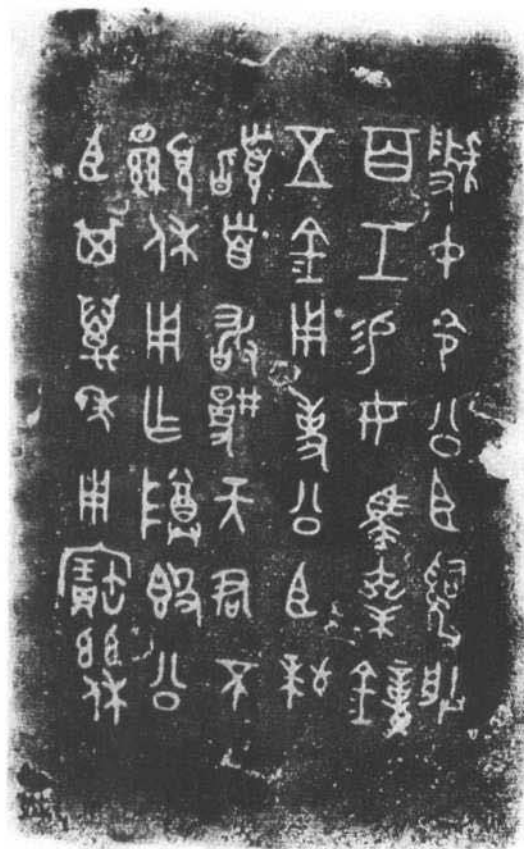 虢中令公臣𤔲朕
百工易女馬乘鐘
五金用事公臣拜
䭫首敢揚天君不
顯休用乍尊𣪘公
臣其萬年用寶茲休